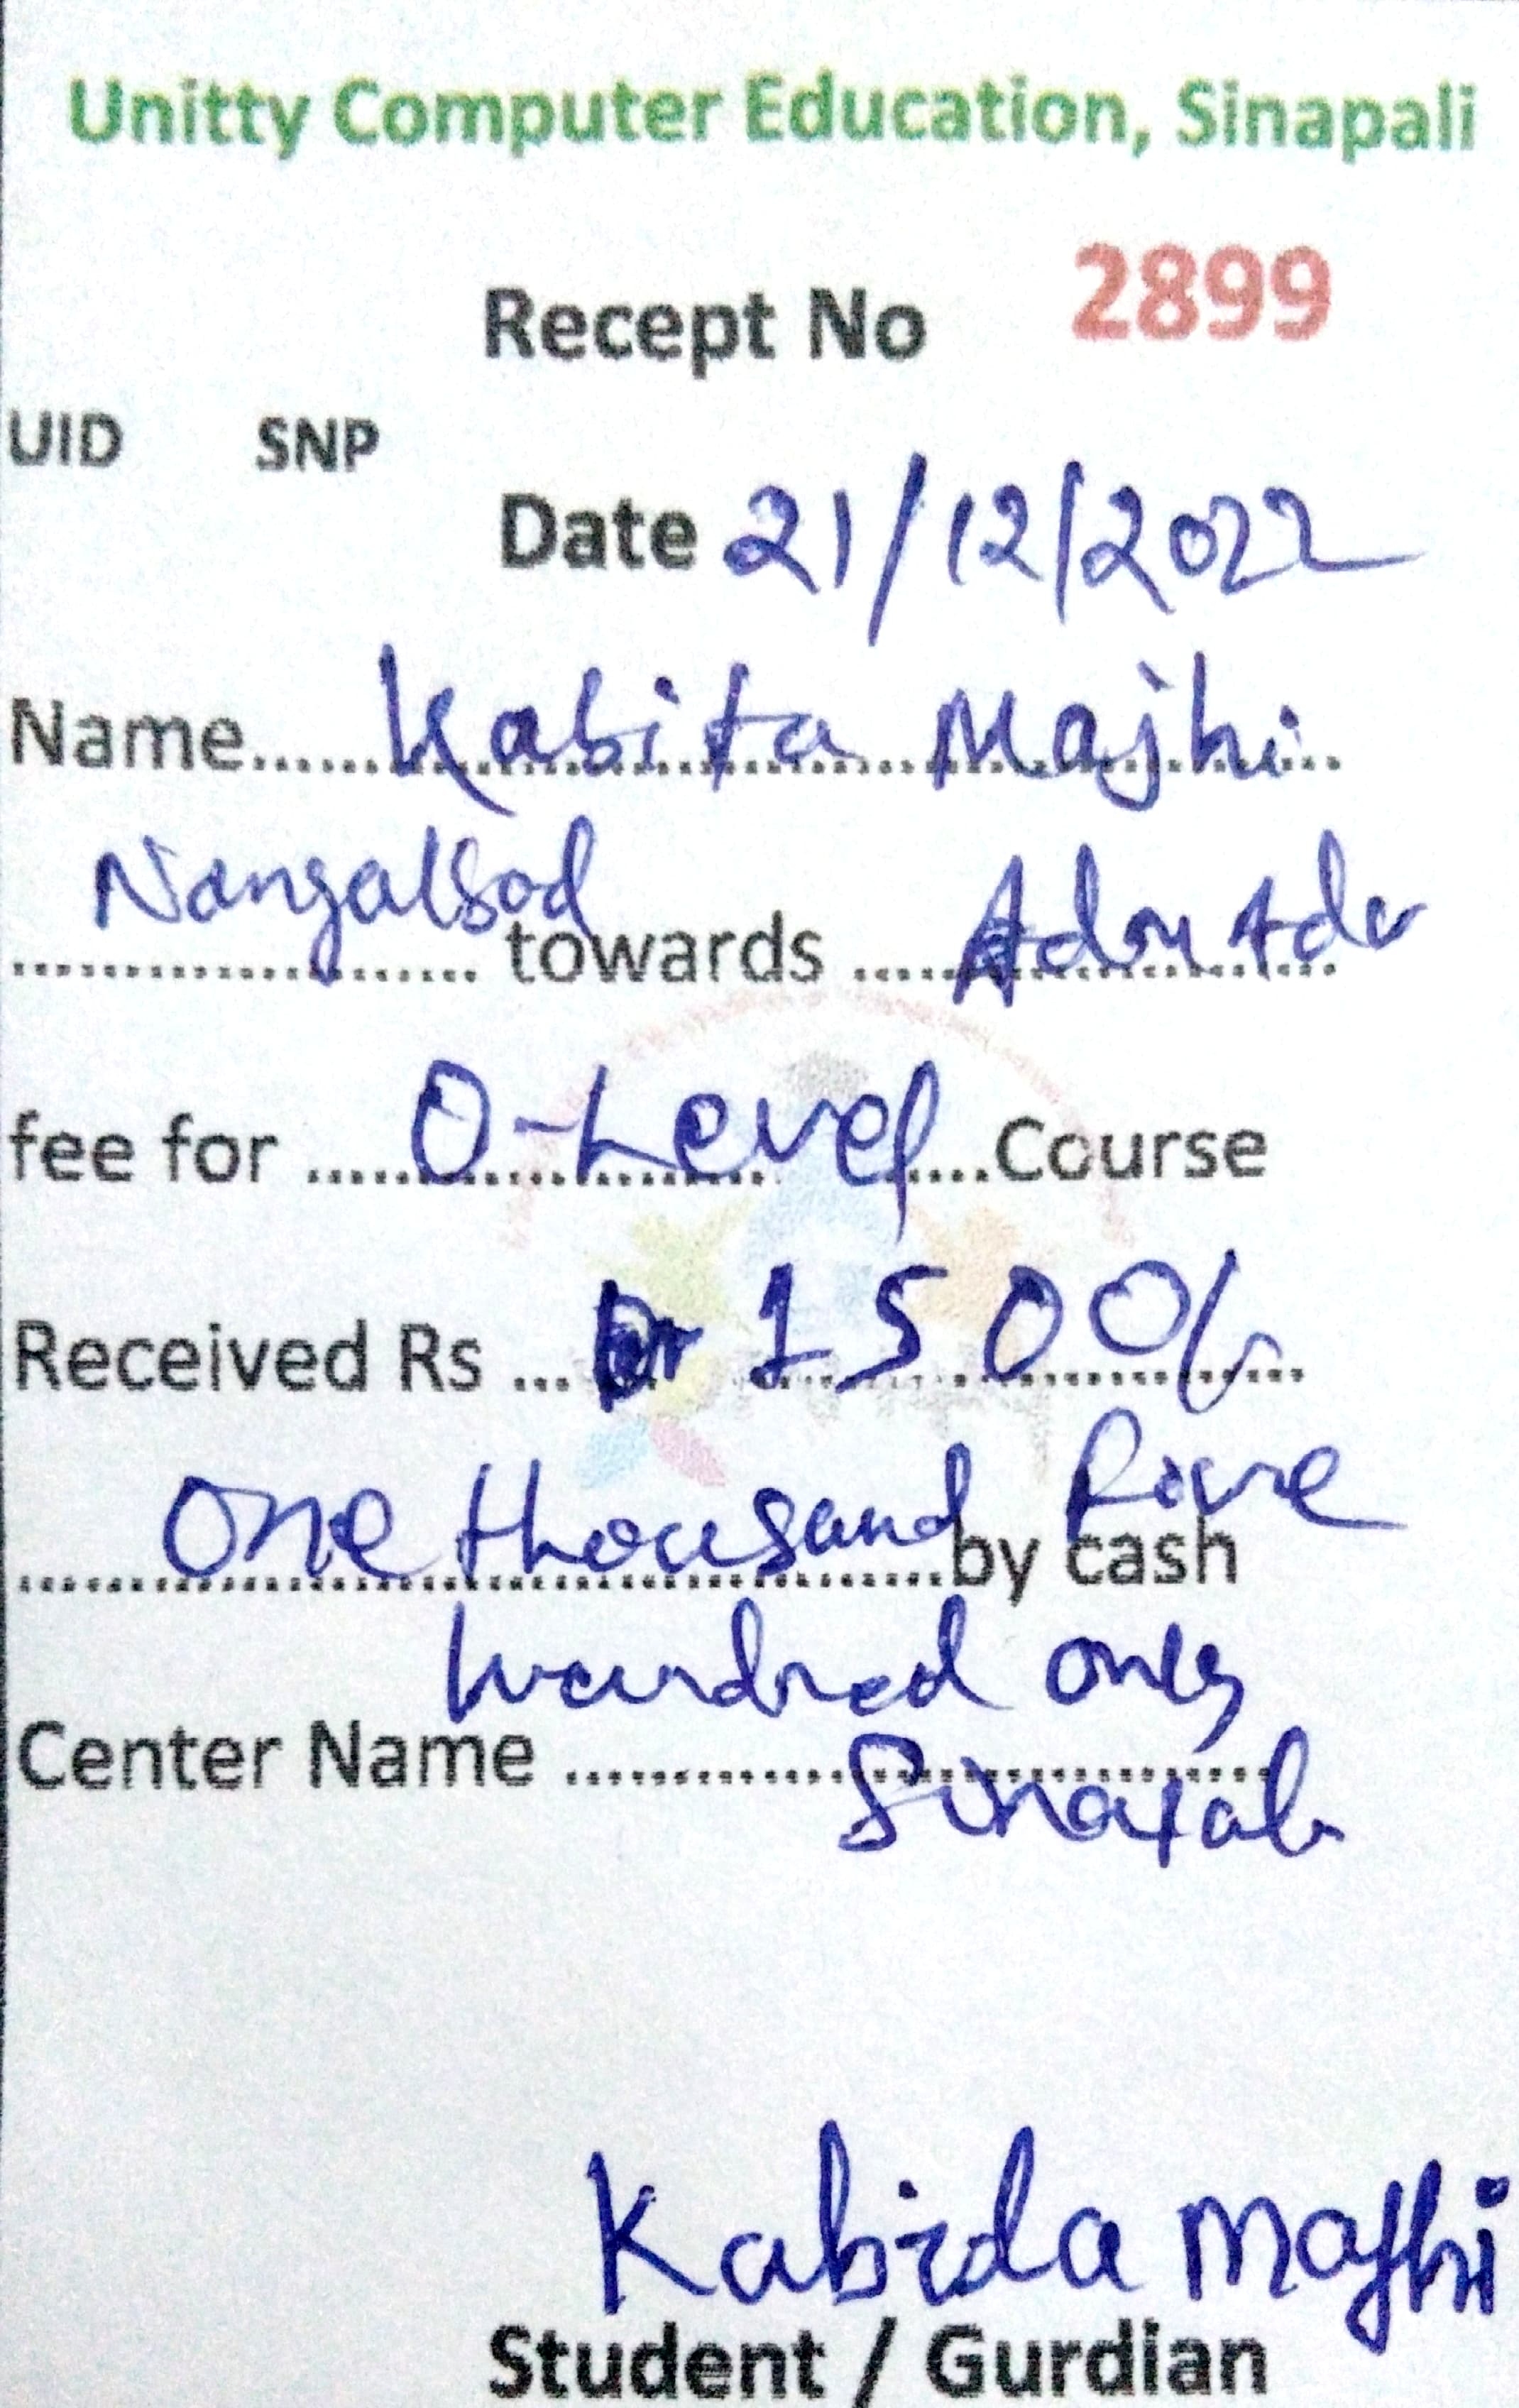 Unitty Computer Education, Sinapali
Recept No 2899
UID SNP
Date 21/12/2022
Name........Kabita Majhi..
Nangalbod towards ....
fee for ..... O-Level ....Course
Received Rs ... 1500/-
One thousand Five
by cash
hundred only
Center Name ..............
Kabida Majhi
Student / Gurdian